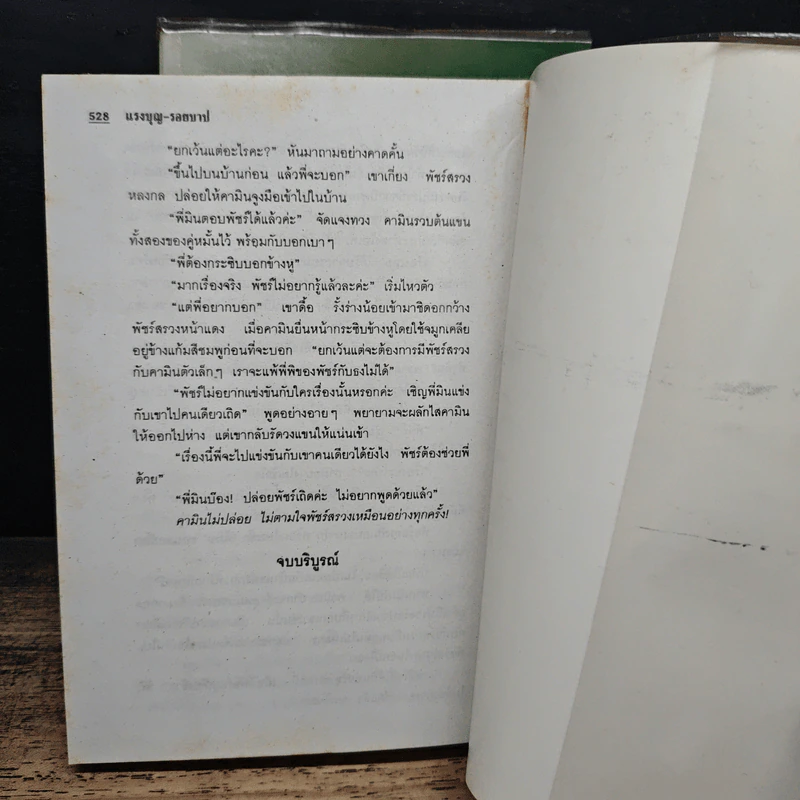 528 แรงบุญ-รอยบาป
"ยกเว้นแต่อะไรคะ?" หันมาถามอย่างคาดคั้น
"ขึ้นไปบนบ้านก่อน แล้วพี่จะบอก" เขาเกี่ยง พัชร์สรวง
หลงกล ปล่อยให้คามินจูงมือเข้าไปในบ้าน
"พี่มินตอบพัชร์ได้แล้วค่ะ" จัดแจงทวง คามินรวบต้นแขน
ทั้งสองของคู่หมั้นไว้ พร้อมกับบอกเบาๆ
"พี่ต้องกระซิบบอกข้างหู"
"มากเรื่องจริง พัชร์ไม่อยากรู้แล้วละค่ะ" เริ่มไหวตัว
"แต่พี่อยากบอก" เขาดื้อ รั้งร่างน้อยเข้ามาชิดอกกว้าง
พัชร์สรวงหน้าแดง เมื่อคามินยื่นหน้ากระซิบข้างหูโดยใช้จมูกเคลีย
อยู่ข้างแก้มสีชมพูก่อนที่จะบอก "ยกเว้นแต่จะต้องการมีพัชร์สรวง
กับคามินตัวเล็กๆ เราจะแพ้พี่พิของพัชร์กับธงไม่ได้"
"พัชร์ไม่อยากแข่งขันกับใครเรื่องนั้นหรอกค่ะ เชิญพี่มินแข่ง
กับเขาไปคนเดียวเถิด" พูดอย่างอายๆ พยายามจะผลักไสคามิน
ให้ออกไปห่าง แต่เขากลับรัดวงแขนให้แน่นเข้า
"เรื่องนี้พี่จะไปแข่งขันกับเขาคนเดียวได้ยังไง พัชร์ต้องช่วยพี่
ด้วย"
"พี่มินบ๊อง! ปล่อยพัชร์เถิดค่ะ ไม่อยากพูดด้วยแล้ว"
คามินไม่ปล่อย ไม่ตามใจพัชร์สรวงเหมือนอย่างทุกครั้ง!
จบบริบูรณ์